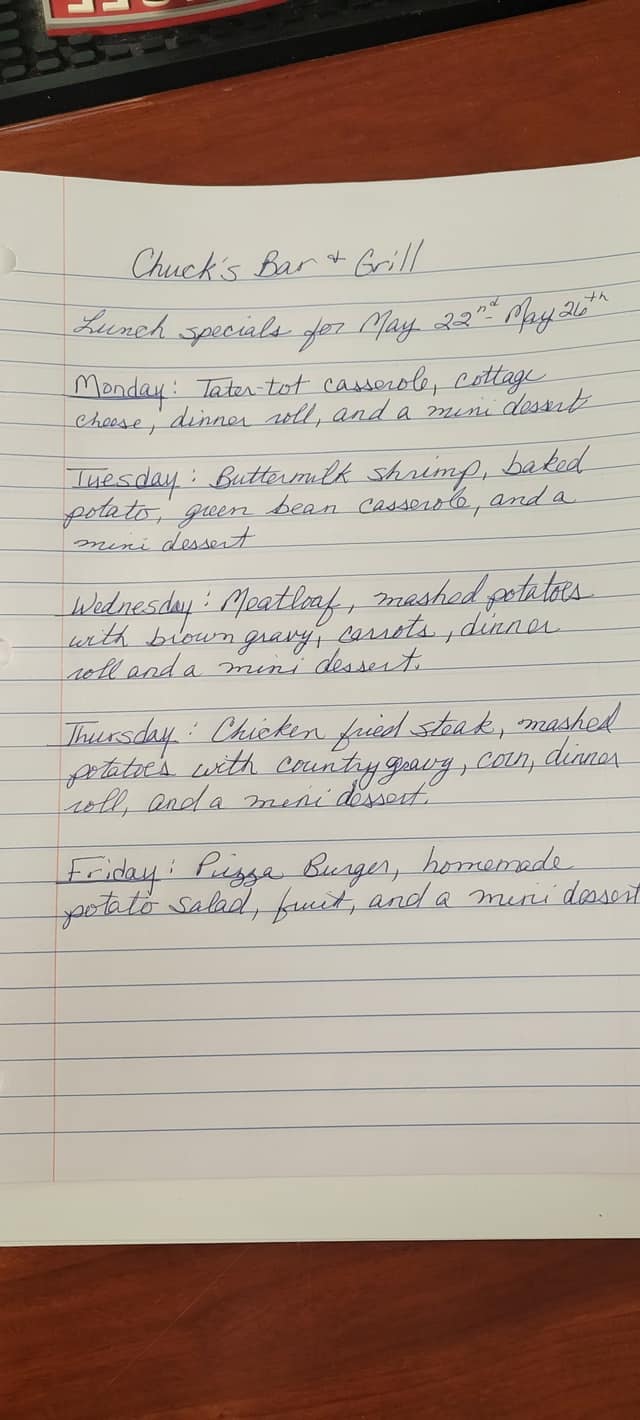 Chuck's Bar & Grill
Lunch specials for May 22nd - May 26th
Monday: Tater-tot casserole, cottage
cheese, dinner roll, and a mini dessert
Tuesday: Buttermilk shrimp, baked
potato, green bean casserole, and a
mini dessert
Wednesday: Meatloaf, mashed potatoes
with brown gravy, carrots, dinner
roll and a mini dessert.
Thursday: Chicken fried steak, mashed
potatoes with country gravy, corn, dinner
roll, and a mini dessert.
Friday: Pizza Burger, homemade
potato salad, fruit, and a mini dessert